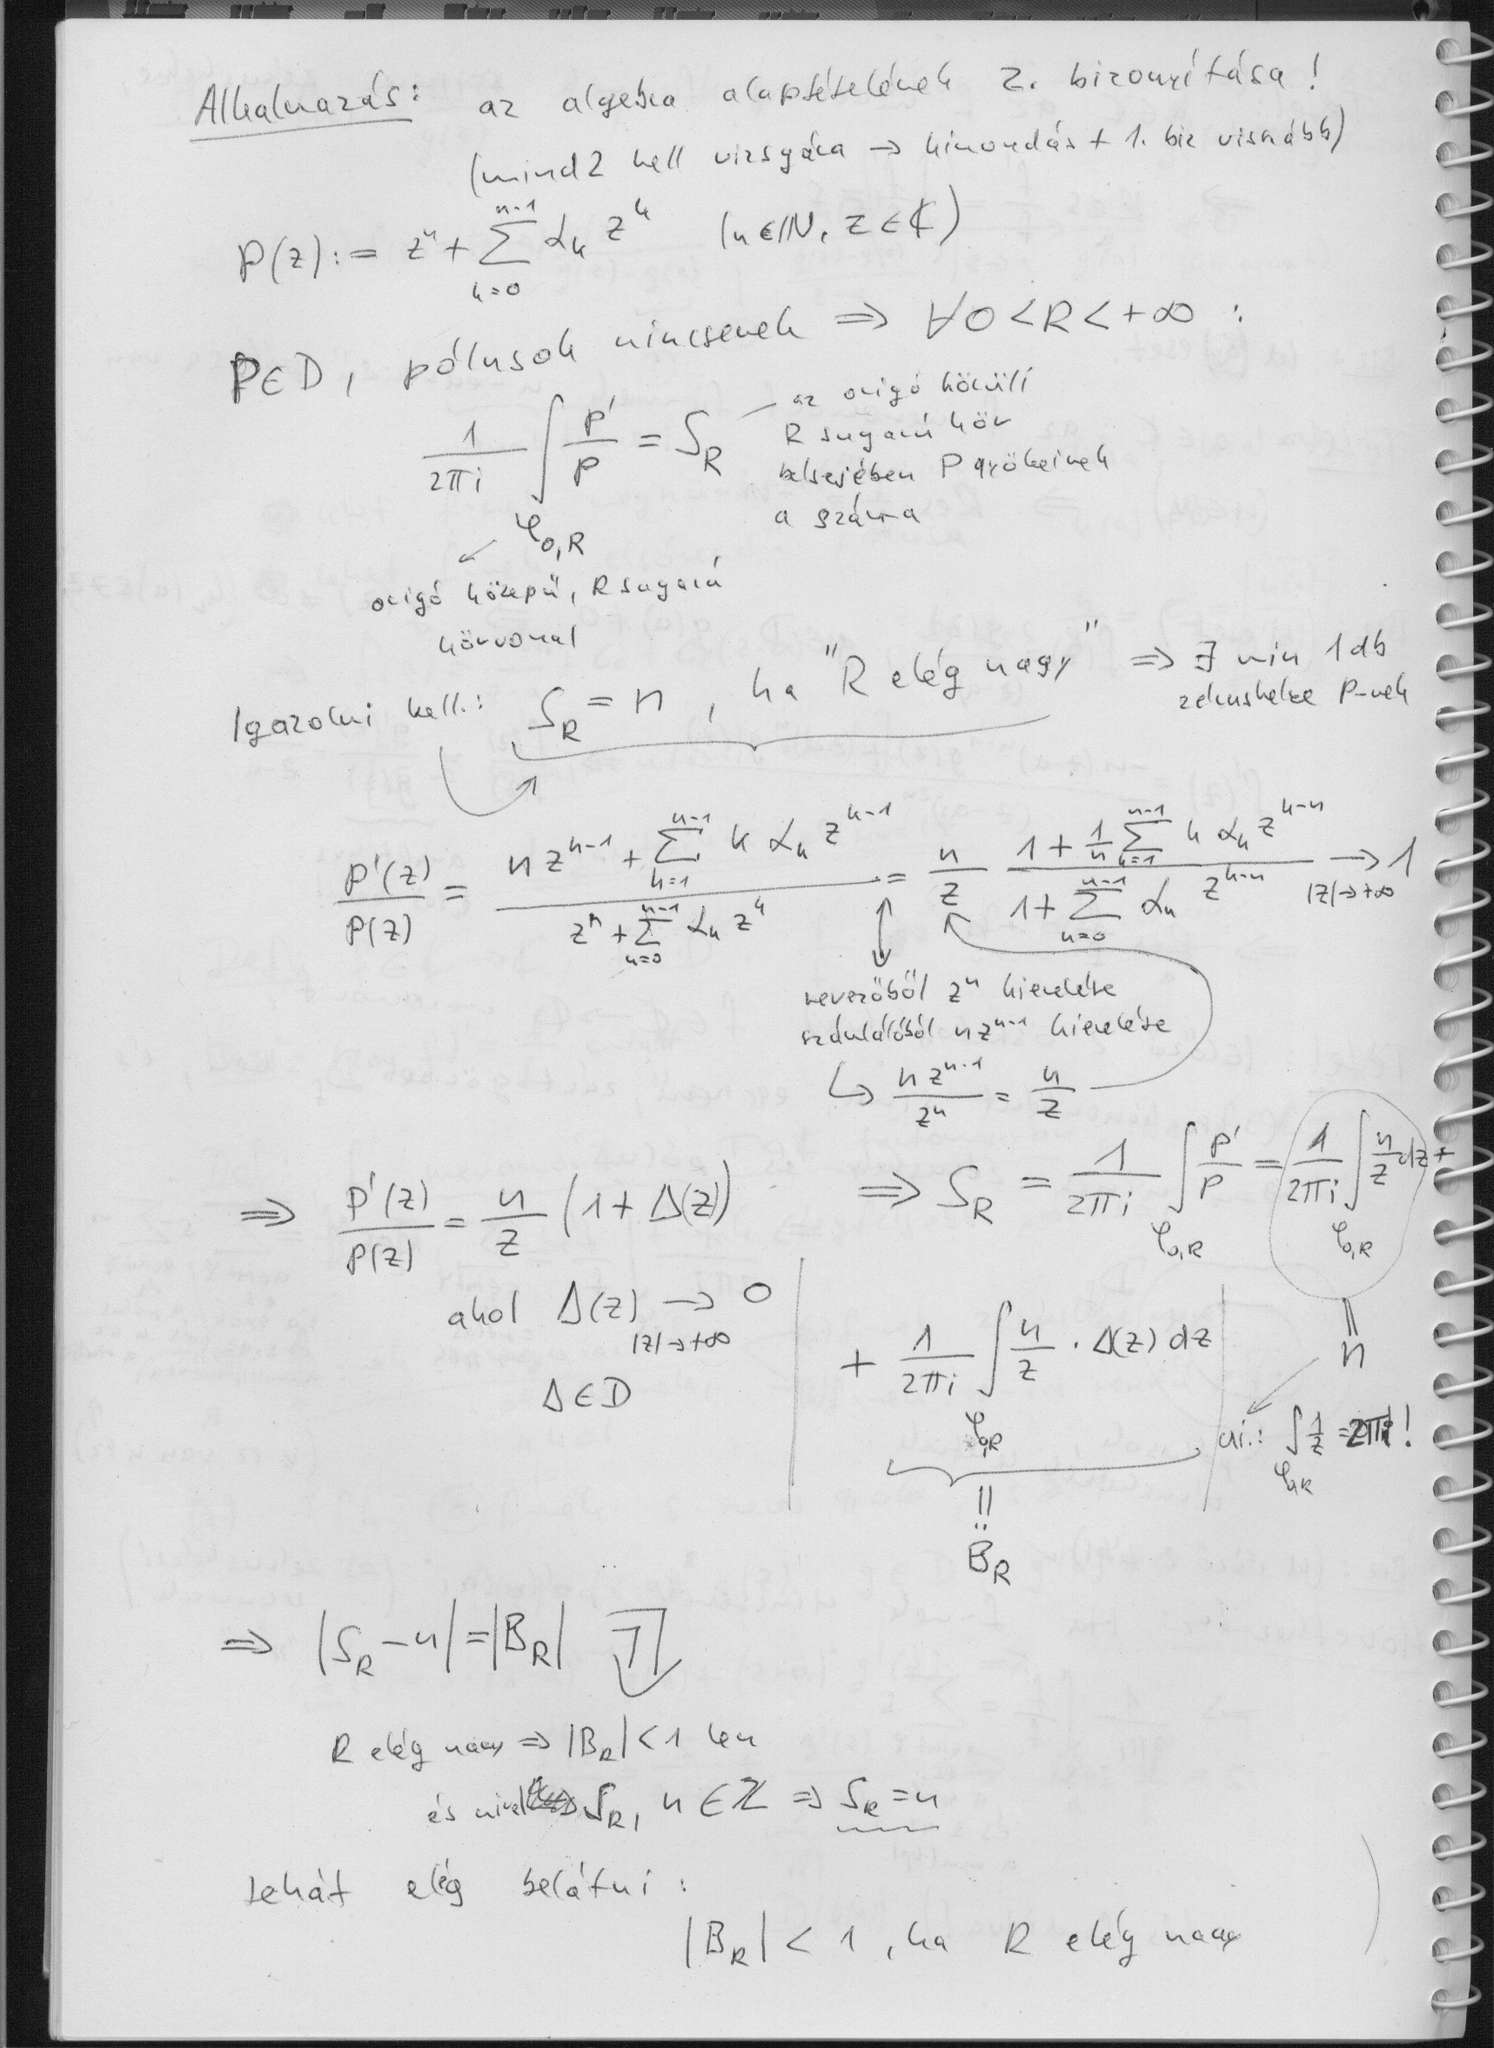 Alkalmazás: az algebra alaptételének 2. bizonyítása!
(mind2 kell vizsgára → kimondás + 1. biz visszább)
P(z) := zⁿ + ∑_{k=0}^{n-1} α_k z^k (n∈ℕ, z∈ℂ)
P∈D, pólusok nincsenek ⇒ ∀0<R<+∞ :
1/(2πi) ∫_{φ_{0,R}} P'/P = S_R
az origó körüli
R sugarú kör
belsejében P gyökeinek
a száma
origó közepű, R sugarú
körvonal
Igazolni kell.: S_R = n, ha "R elég nagy" ⇒ ∃ min 1 db
zérushelye P-nek
P'(z)/P(z) = (n z^{n-1} + ∑_{k=1}^{n-1} k α_k z^{k-1})/(zⁿ + ∑_{k=0}^{n-1} α_k z^k) = n/z (1 + 1/n ∑_{k=1}^{n-1} k α_k z^{k-n})/(1 + ∑_{k=0}^{n-1} α_k z^{k-n}) → 1
|z|→+∞
nevezőből zⁿ kiemelése
számlálóból n z^{n-1} kiemelése
↳ n z^{n-1}/zⁿ = n/z
⇒ P'(z)/P(z) = n/z (1 + Δ(z))
ahol Δ(z) → 0
|z|→+∞
Δ∈D
⇒ S_R = 1/(2πi) ∫_{φ_{0,R}} P'/P = 1/(2πi) ∫_{φ_{0,R}} n/z dz +
+ 1/(2πi) ∫_{φ_{0,R}} n/z · Δ(z) dz
=: B_R
= n
ui.: ∫_{φ_{0,R}} 1/z = 2πi!
⇒ |S_R − n| = |B_R|
R elég nagy ⇒ |B_R| < 1 lesz
és mivel S_R, n ∈ ℤ ⇒ S_R = n
tehát elég belátni:
|B_R| < 1, ha R elég nagy